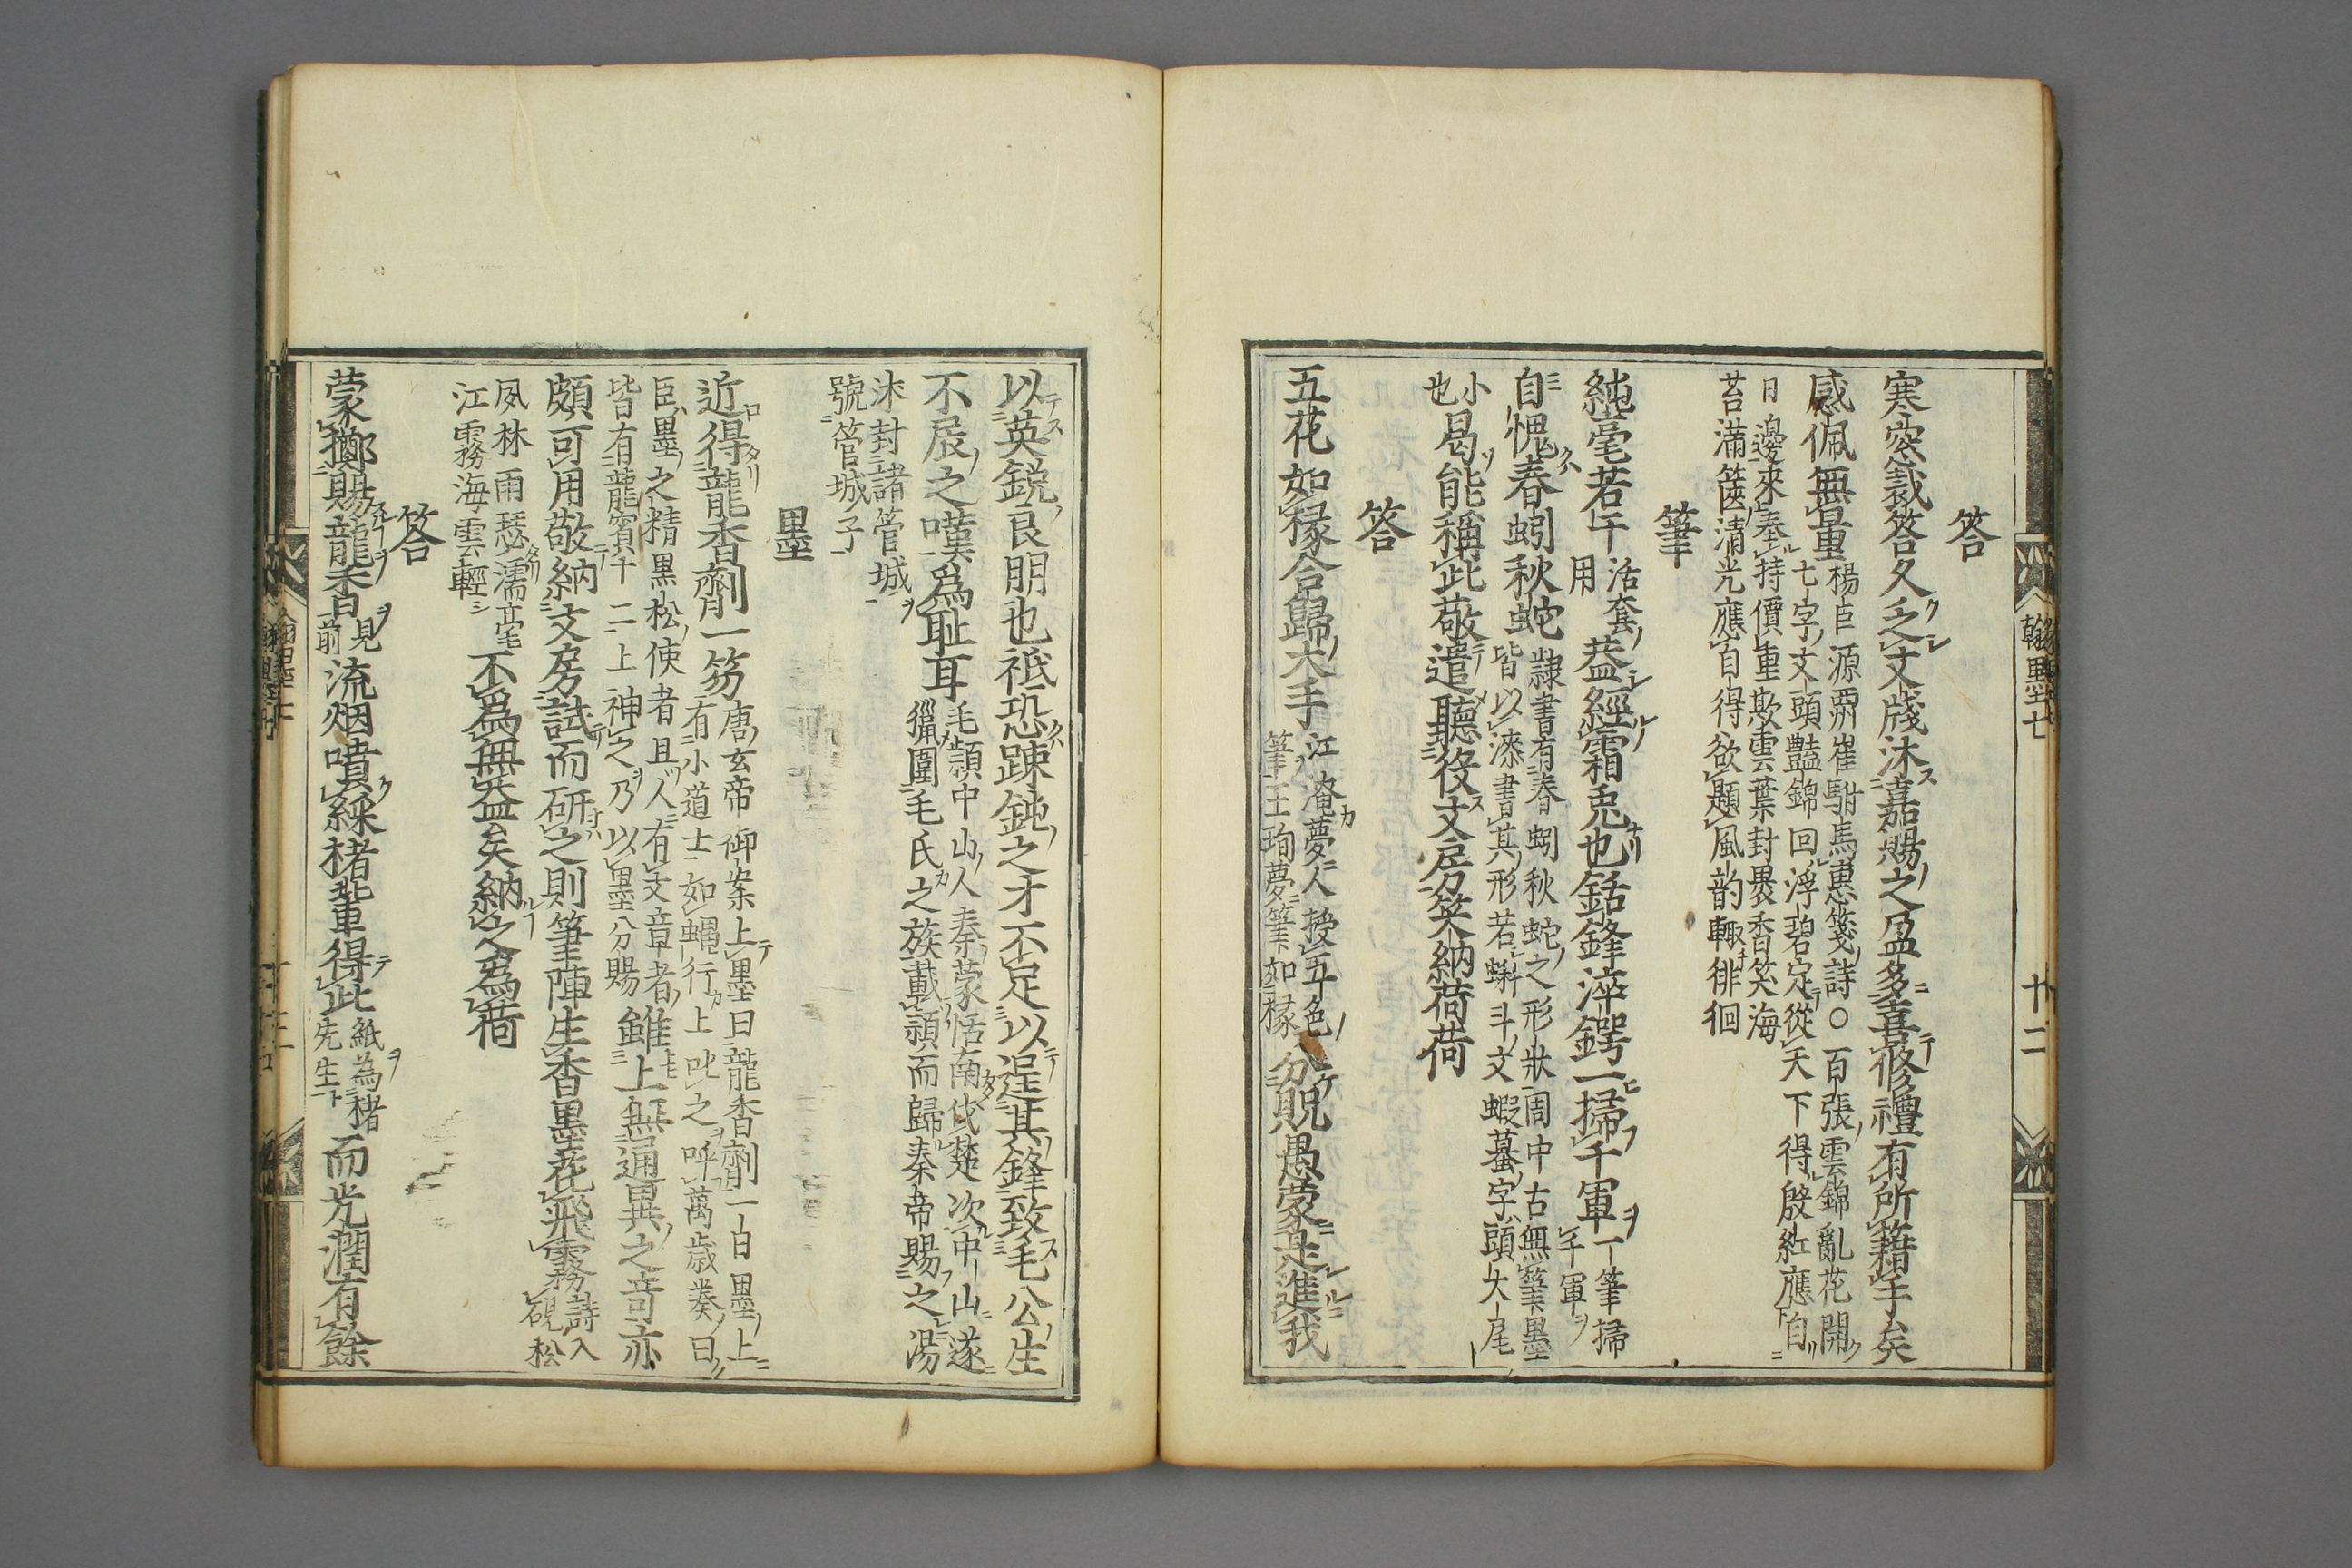 答
寒窓裁答久乏文牋沐嘉賜之盈多喜修禮有所籍手矣
感佩無量楊巨源酬崔駙馬惠箋詩○百張雲錦亂花開
七字文頭豔錦回浮碧定從天下得殷紅應自
日邊來奉持價重欺雲葉封裹香笑海
苔滿篋清光應自得欲題風韵輙徘徊
筆
純毫若干活套用葢經霜兎也銛鋒淬鍔一掃千軍一筆掃千軍
自愧春蚓秋蛇隷書有春蚓秋蛇之形狀周中古無筆墨
皆以漆書其形若蝌斗文蝦蟇字頭大尾
小也曷能稱此敬遣聽役文房笑納荷荷
答
五花如椽合歸大手江淹夢人授五色筆王珣夢筆如椽分貺愚蒙是進我
以英鋭良朋也祗恐踈鈍之才不足以逞其鋒致毛公生
不辰之嘆爲耻耳毛頴中山人秦蒙恬南伐楚次中山遂
獵圍毛氏之族載頴而歸秦帝賜之湯
沐封諸管城
號管城子
墨
近得龍香劑一笏唐玄帝御案上墨曰龍香劑一白墨上
有小道士如蠅行上叱之呼萬歳奏曰
臣墨之精黒松使者且人有文章者
皆有龍賓十二上神之乃以墨分賜雖上無通異之竒亦
頗可用敬納文房試而研之則筆陣生香墨花飛霧詩入硯松
夙林雨瑟濡毫
江霧海雲輕不爲無益矣納之爲荷
答
蒙擲賜龍香見前流烟噴綵楮輩得此紙為楮先生而光潤有餘
翰墨七
廿二